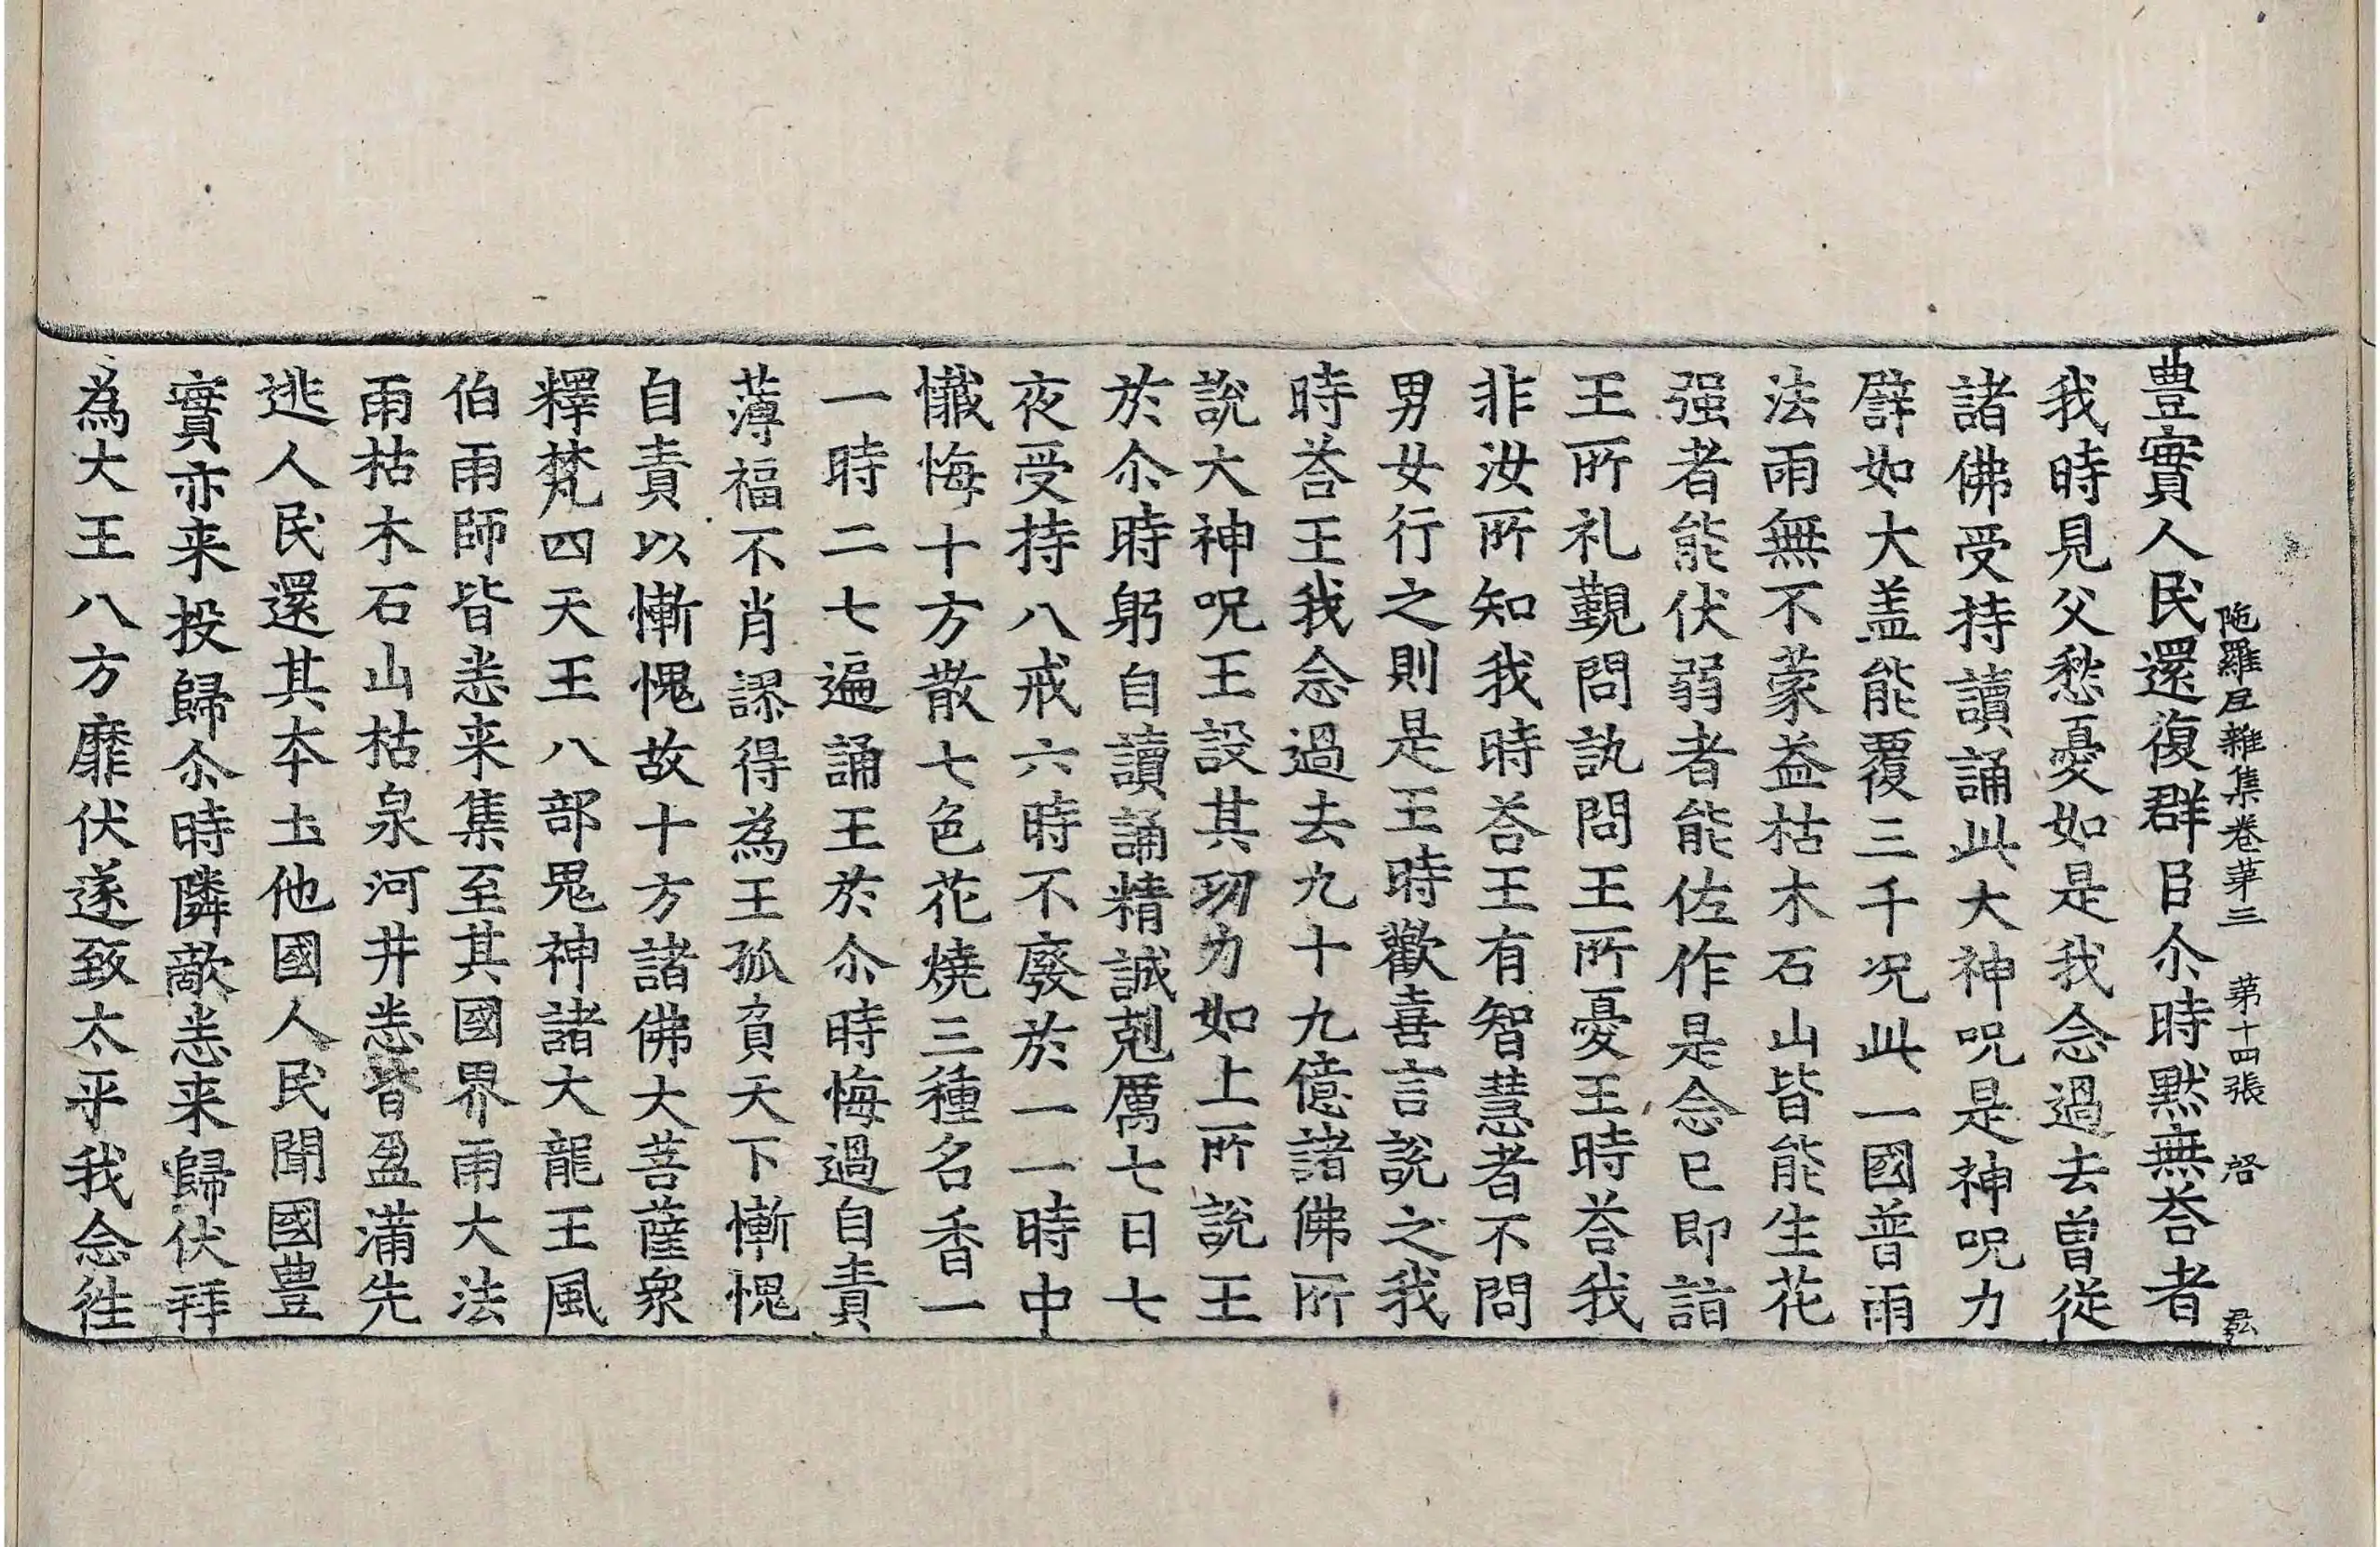 陁羅尼雜集卷苐三 第十四張 啓 㢲
豊實人民還復群臣尒時黙無荅者
我時見父愁憂如是我念過去曽從
諸佛受持讀誦此大神呪是神呪力
譬如大盖能覆三千况此一國普雨
法雨無不蒙益枯木石山皆能生花
强者能伏弱者能佐作是念已即詣
王所礼覲問訊問王所憂王時荅我
非汝所知我時荅王有智慧者不問
男女行之則是王時歡喜言說之我
時荅王我念過去九十九億諸佛所
說大神呪王設其功力如上所說王
於尒時躬自讀誦精誠剋厲七日七
夜受持八戒六時不廢於一一時中
懺悔十方散七色花燒三種名香一
一時二七遍誦王於尒時悔過自責
薄福不肖謬得為王孤負天下慚愧
自責以慚愧故十方諸佛大菩薩衆
釋梵四天王八部鬼神諸大龍王風
伯雨師皆悉来集至其國界雨大法
雨枯木石山枯泉河井悉皆盈滿先
逃人民還其本土他國人民聞國豊
實亦来投歸尒時隣敵悉来歸伏拜
為大王八方靡伏遂致太平我念徃